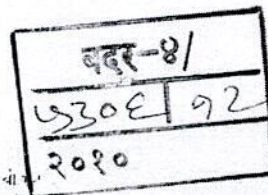 वदर-४/
५३०६ १२
२०१०